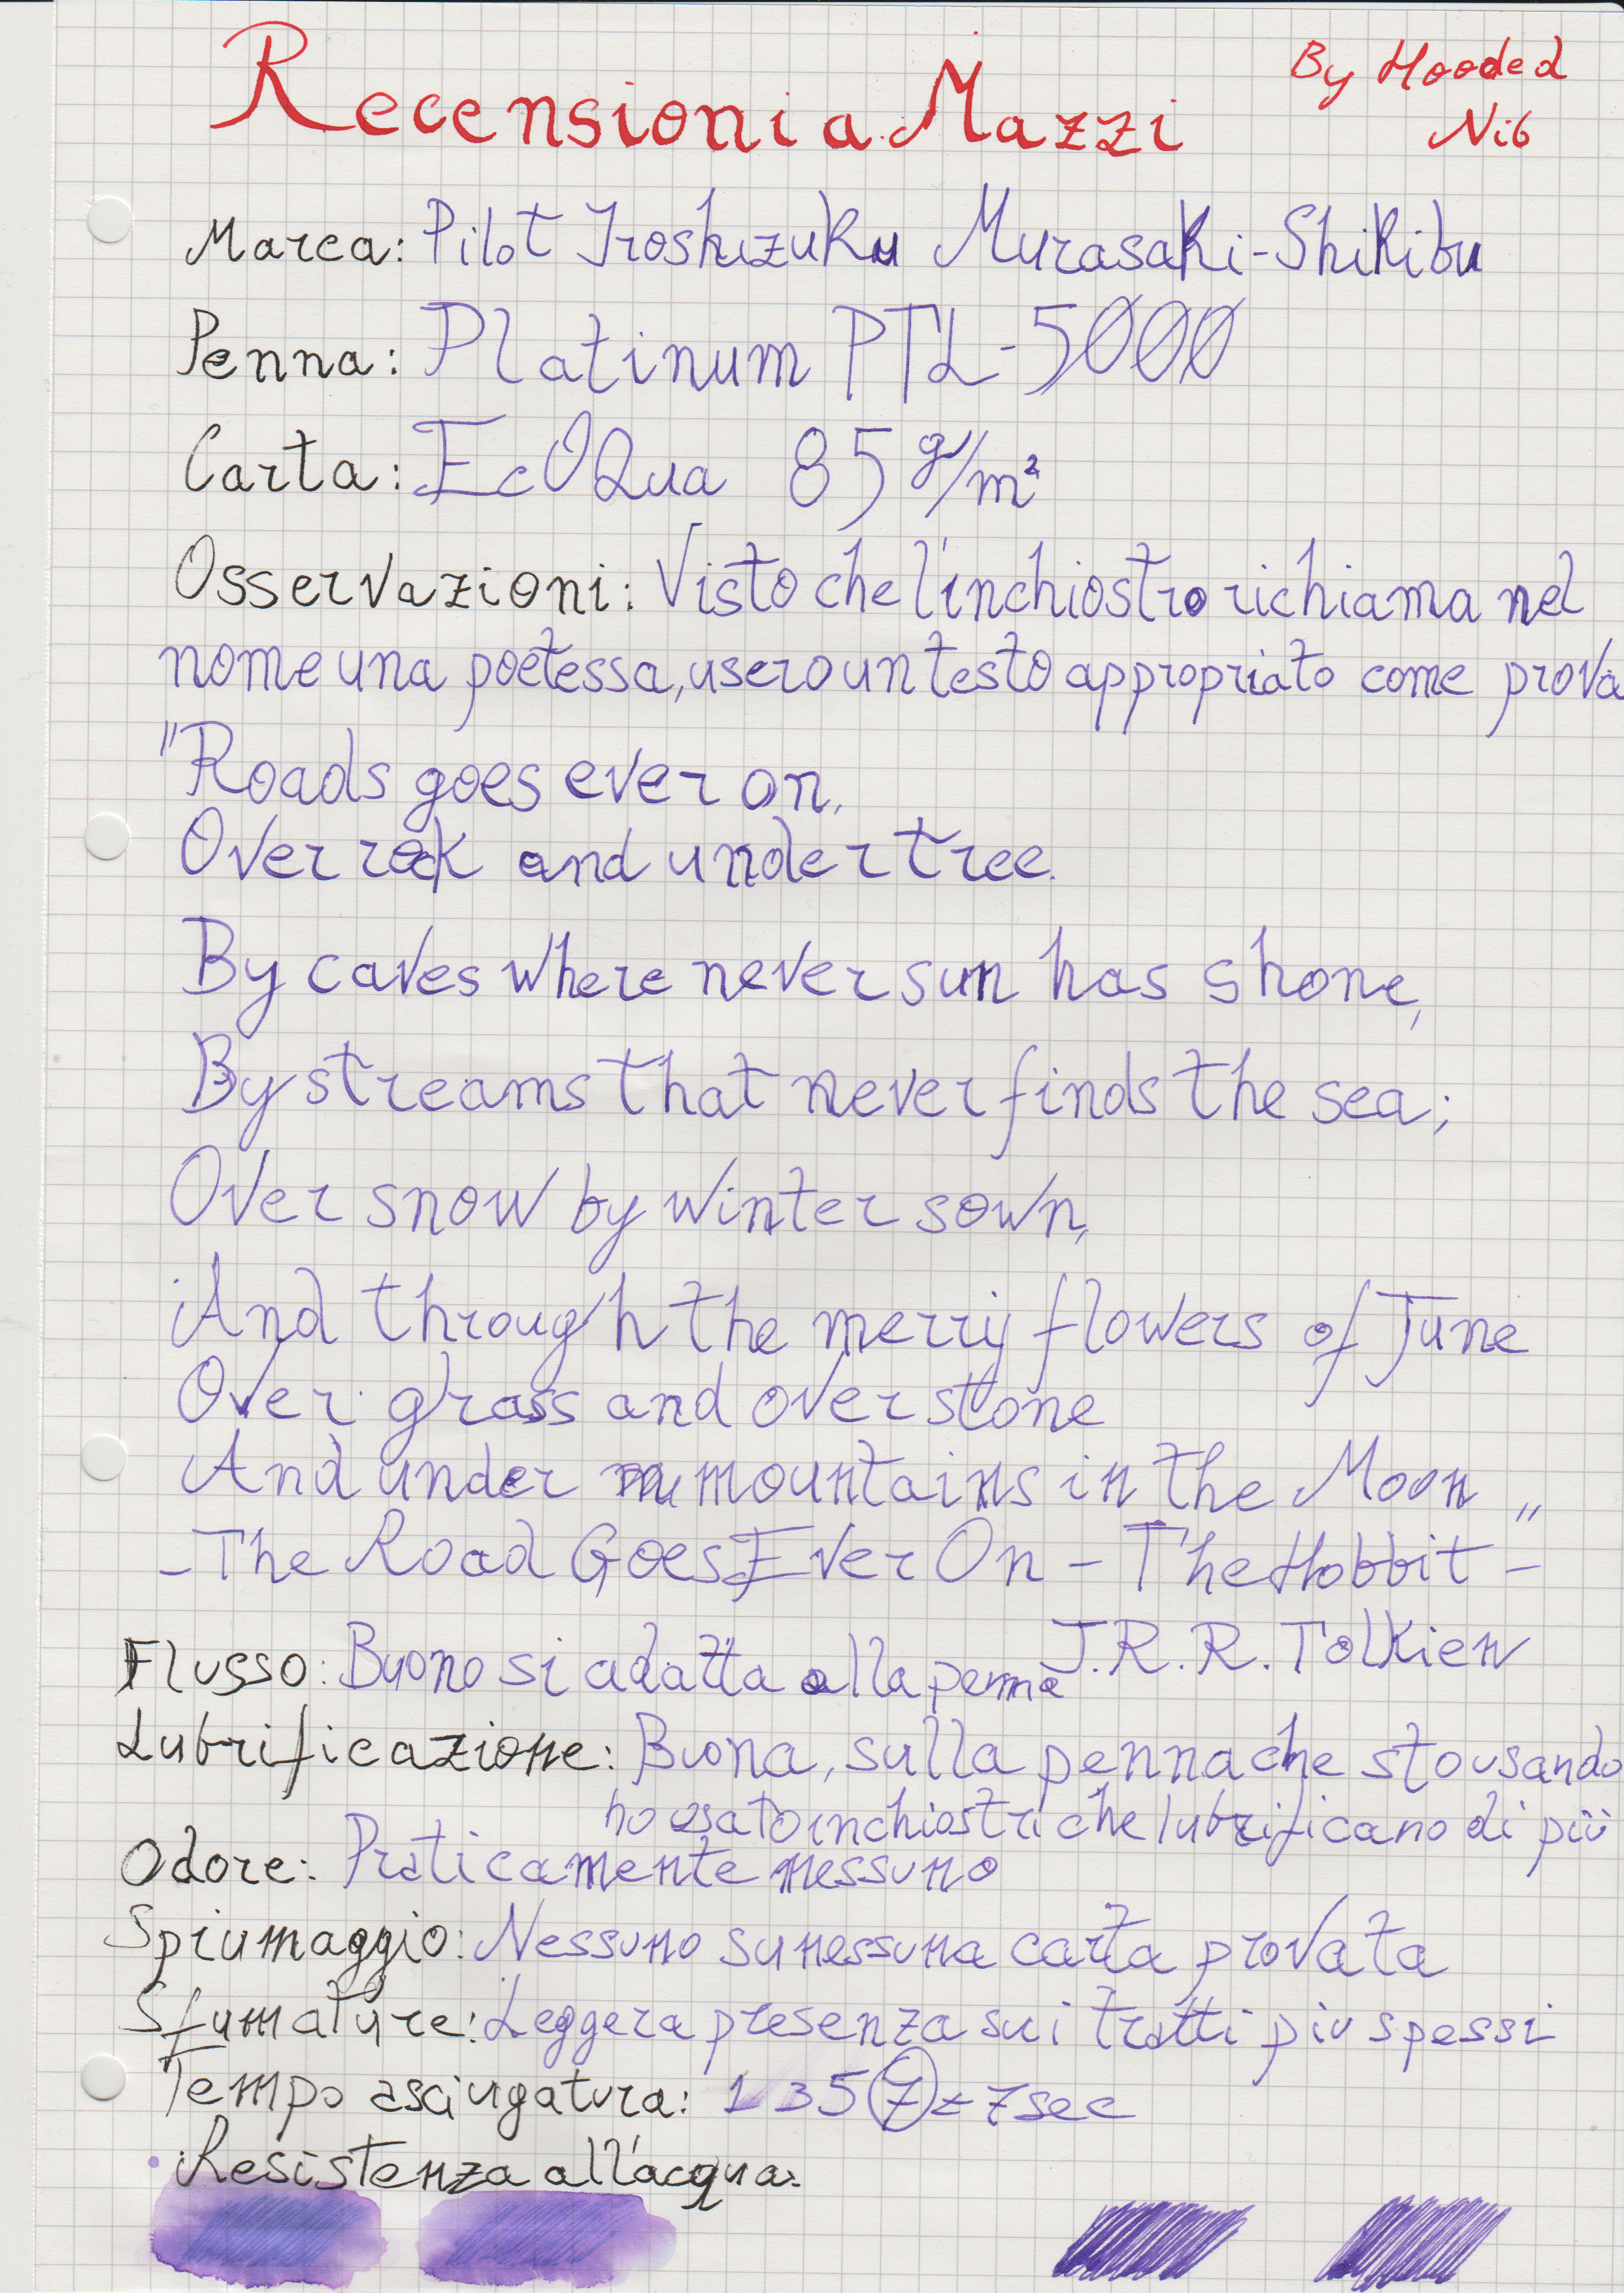 Recensioni a Mazzi
By Hooded
Nib
Marca: Pilot Iroshizuku Murasaki-Shikibu
Penna: Platinum PTL-5000
Carta: EcOQua 85 g/m²
Osservazioni: Visto che l'inchiostro richiama nel
nome una poetessa, usero un testo appropriato come prova
"Roads goes ever on,
Over rock and under tree.
By caves where never sun has shone,
By streams that never finds the sea;
Over snow by winter sown,
And through the merry flowers of June
Over grass and over stone
And under mountains in the Moon „
- The Road Goes Ever On - The Hobbit -
J.R.R. Tolkien
Flusso: Buono si adatta alla penna
Lubrificazione: Buona, sulla penna che sto usando
ho usato inchiostri che lubrificano di più
Odore: Praticamente nessuno
Spiumaggio: Nessuno su nessuna carta provata
Sfumature: Leggera presenza sui tratti piu spessi
Tempo asciugatura: 1 3 5 7 ± 7sec
Resistenza all'acqua: